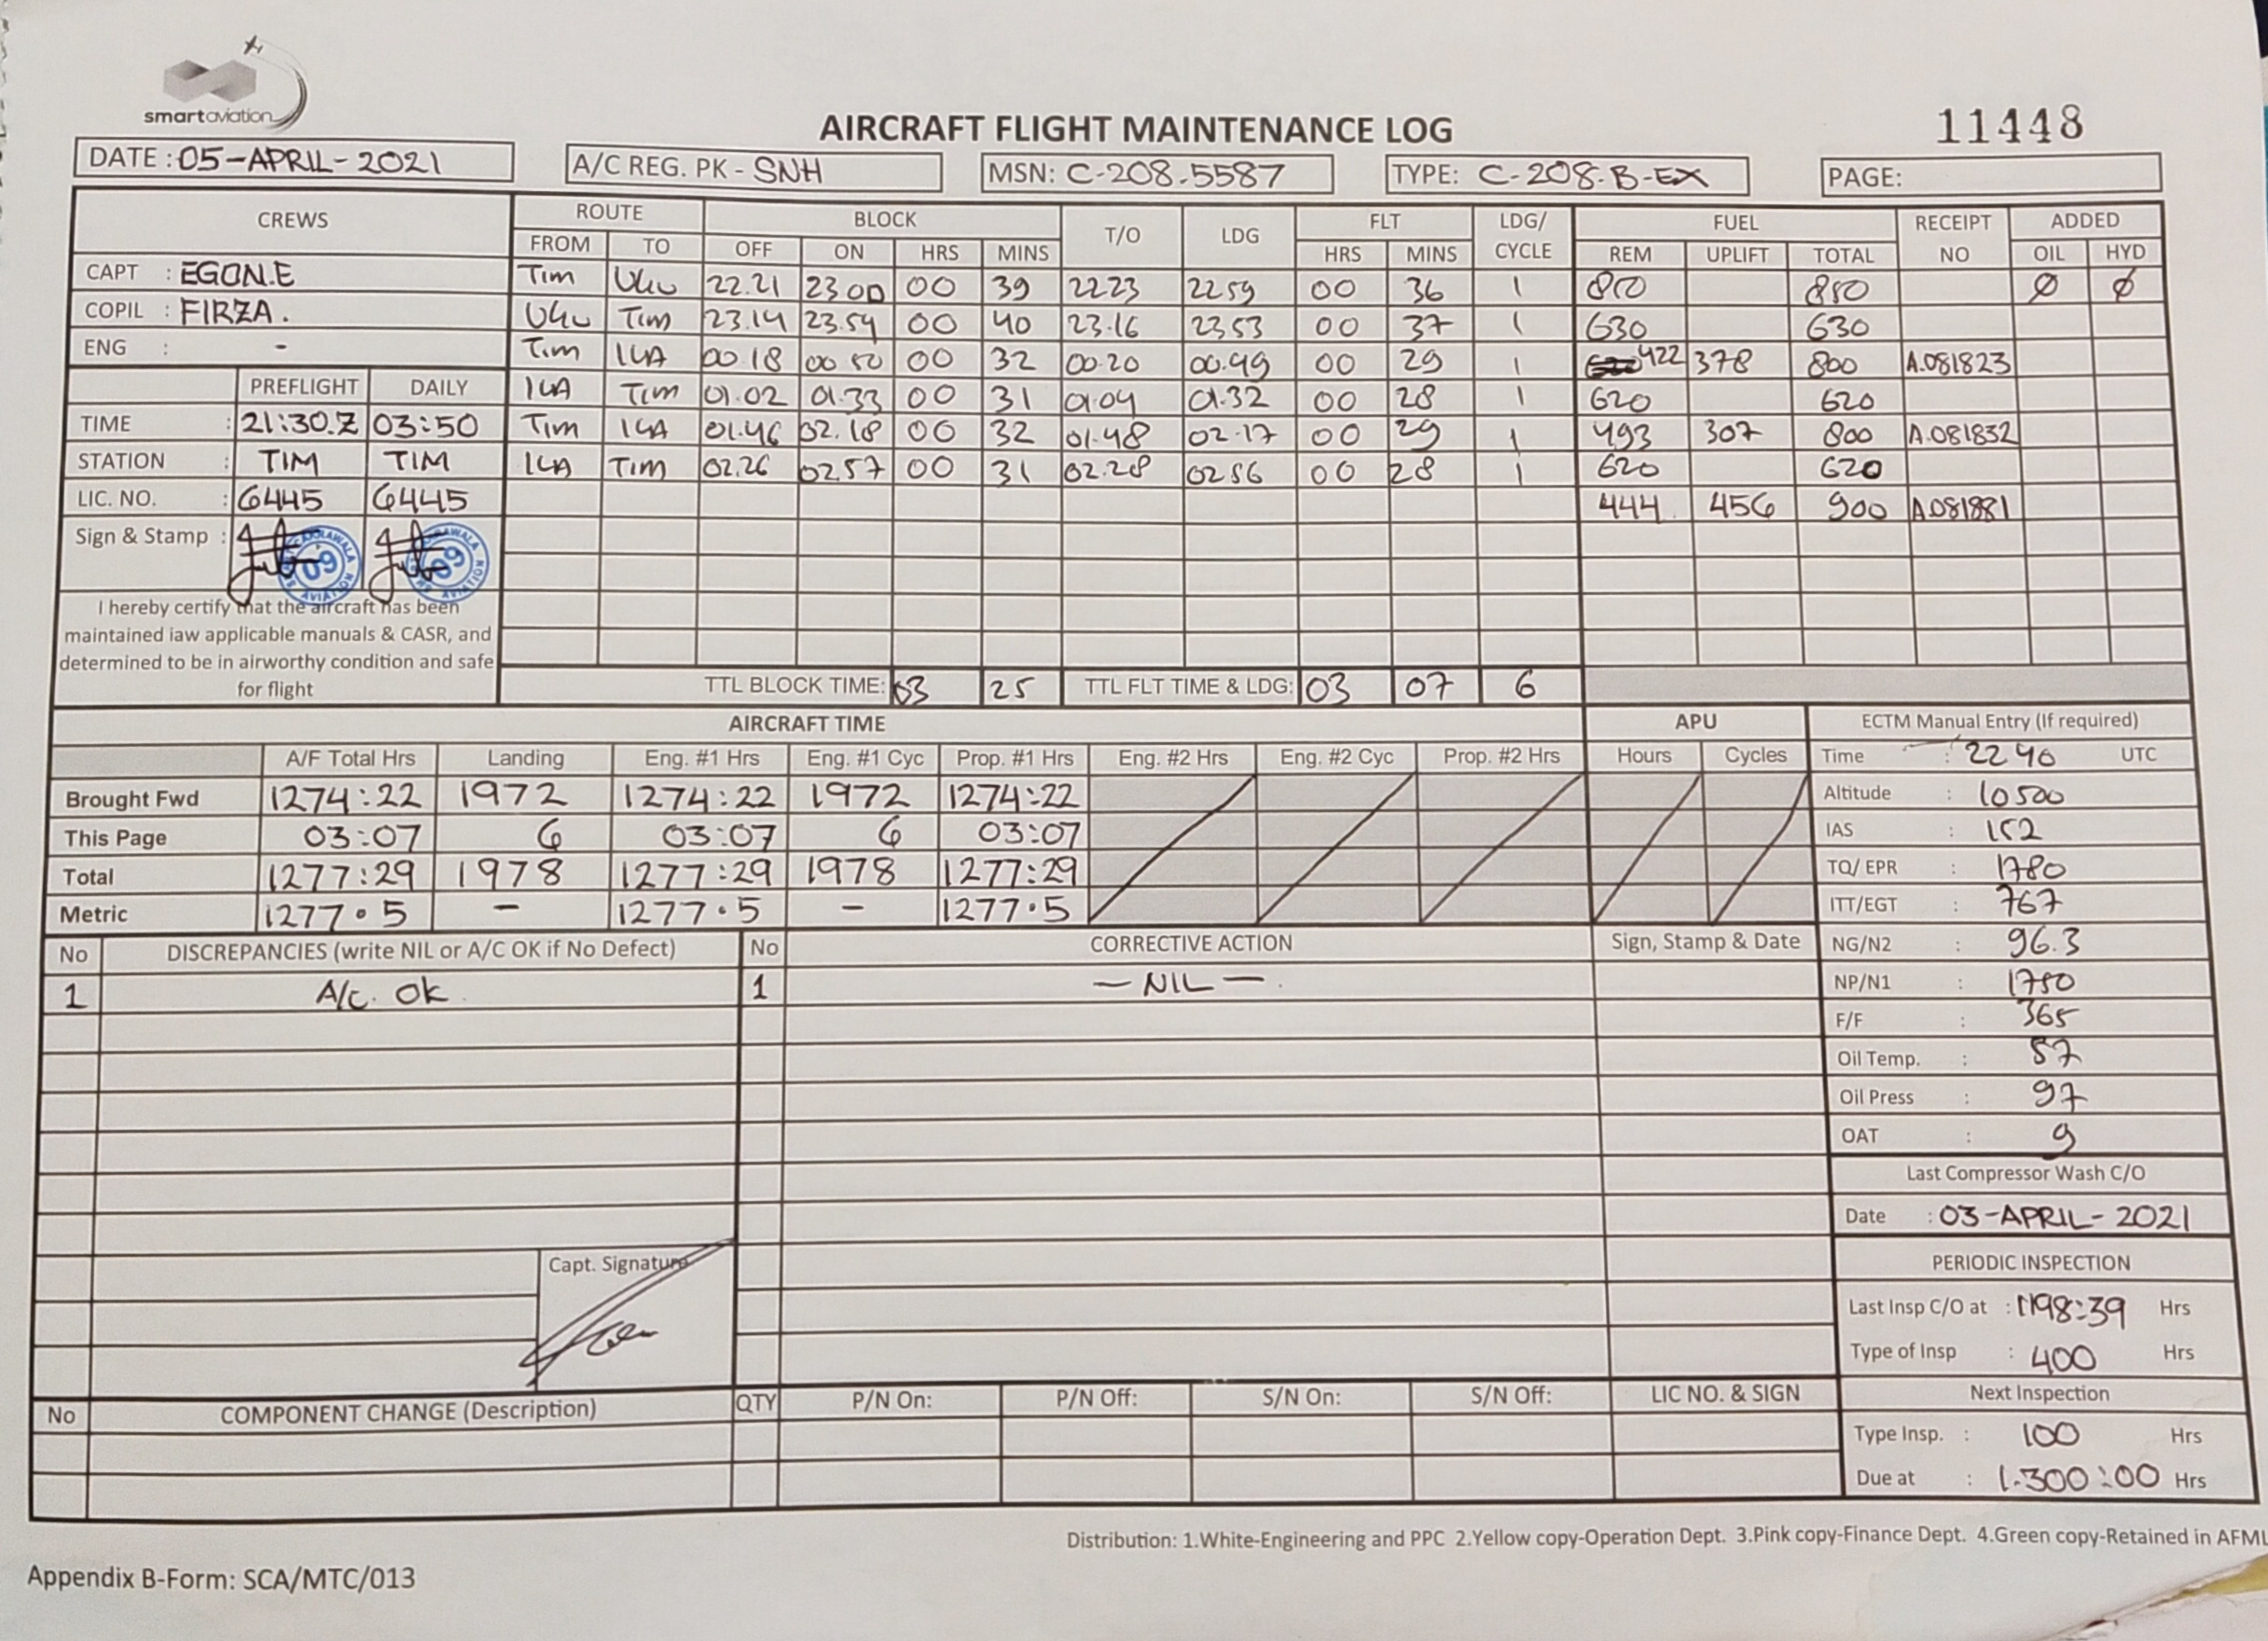 smartaviation
AIRCRAFT FLIGHT MAINTENANCE LOG
11448
DATE : 05-APRIL-2021 A/C REG. PK - SNH MSN: C-208.5587 TYPE: C-208.B-EX PAGE:
CREWS ROUTE BLOCK T/O LDG FLT LDG/ CYCLE FUEL RECEIPT NO ADDED
FROM TO OFF ON HRS MINS HRS MINS REM UPLIFT TOTAL OIL HYD
CAPT : EGON.E Tim 22.21 23 00 00 39 22 23 22 59 00 36 1 850 850 Ø Ø
COPIL : FIRZA. Tim 23.14 23.54 00 40 23.16 23 53 00 37 1 630 630
ENG : - Tim ILA 00.18 00 50 00 32 00.20 00.49 00 29 1 422 378 800 A.081823
PREFLIGHT DAILY ILA Tim 01.02 01.33 00 31 01.04 01.32 00 28 1 620 620
TIME : 21:30.Z 03:50 Tim ILA 01.46 02.18 00 32 01.48 02.17 00 29 1 493 307 800 A.081832
STATION : TIM TIM ILA Tim 02.26 02.57 00 31 02.28 02 56 00 28 1 620 620
LIC. NO. : 6445 6445 444 456 900 A.081881
Sign & Stamp :
09 09
I hereby certify that the aircraft has been
maintained iaw applicable manuals & CASR, and
determined to be in airworthy condition and safe
for flight
TTL BLOCK TIME: 03 25 TTL FLT TIME & LDG: 03 07 6
AIRCRAFT TIME APU ECTM Manual Entry (If required)
A/F Total Hrs Landing Eng. #1 Hrs Eng. #1 Cyc Prop. #1 Hrs Eng. #2 Hrs Eng. #2 Cyc Prop. #2 Hrs Hours Cycles Time : 22 40 UTC
Brought Fwd 1274:22 1972 1274:22 1972 1274:22 Altitude : 10 500
This Page 03:07 6 03:07 6 03:07 IAS : 152
Total 1277:29 1978 1277:29 1978 1277:29 TQ/ EPR : 1780
Metric 1277.5 - 1277.5 - 1277.5 ITT/EGT : 767
No DISCREPANCIES (write NIL or A/C OK if No Defect) No CORRECTIVE ACTION Sign, Stamp & Date NG/N2 : 96.3
1 A/c. OK. 1 — NIL —. NP/N1 : 1750
F/F : 365
Oil Temp. : 57
Oil Press : 97
OAT : 9
Last Compressor Wash C/O
Date : 03-APRIL-2021
Capt. Signature
PERIODIC INSPECTION
Last Insp C/O at : 1198:39 Hrs
Type of Insp : 400 Hrs
No COMPONENT CHANGE (Description) QTY P/N On: P/N Off: S/N On: S/N Off: LIC NO. & SIGN Next Inspection
Type Insp. : 100 Hrs
Due at : 1.300:00 Hrs
Distribution: 1.White-Engineering and PPC 2.Yellow copy-Operation Dept. 3.Pink copy-Finance Dept. 4.Green copy-Retained in AFML
Appendix B-Form: SCA/MTC/013